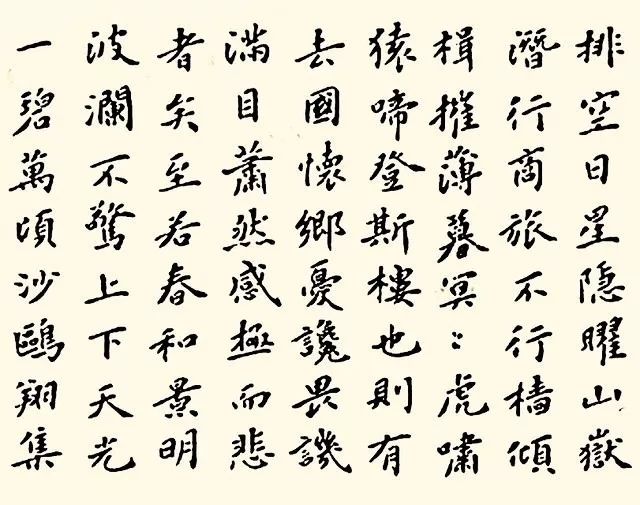 排空日星隐曜山嶽
潛行商旅不行檣傾
楫摧薄暮冥〻虎嘯
猿啼登斯樓也則有
去國懷鄉憂讒畏譏
滿目蕭然感極而悲
者矣至若春和景明
波瀾不驚上下天光
一碧萬頃沙鷗翔集